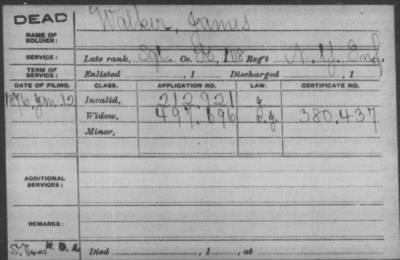 DEAD
Walker, James
NAME OF
SOLDIER:
SERVICE:
Late rank, Sgt Co. Reg't N.Y. Inf.
TERM OF
SERVICE:
Enlisted , 1 Discharged , 1
DATE OF FILING. CLASS. APPLICATION NO. LAW. CERTIFICATE NO.
1876, Jan. 12 Invalid, 212921
Widow, 497,696 380,437
Minor,
ADDITIONAL
SERVICES:
REMARKS:
Died , 1 , at